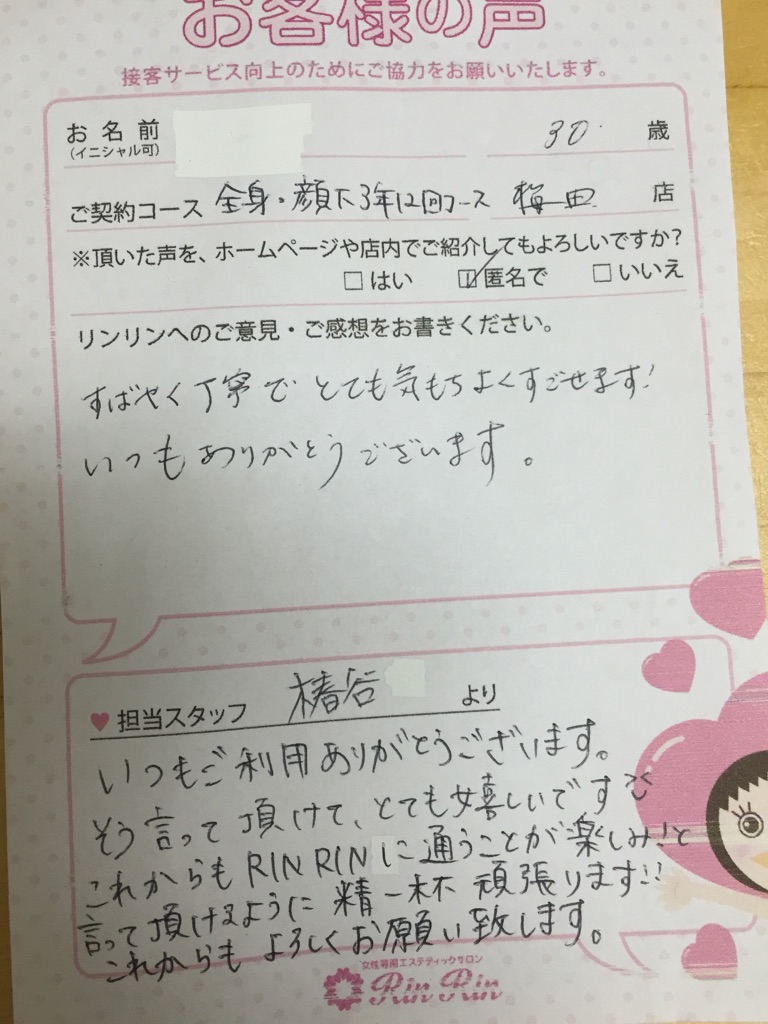 お客様の声
接客サービス向上のためにご協力をお願いいたします。
お名前
(イニシャル可)
30 歳
ご契約コース 全身・顔下3年12回コース 梅田 店
※頂いた声を、ホームページや店内でご紹介してもよろしいですか?
□はい ☑匿名で □いいえ
リンリンへのご意見・ご感想をお書きください。
すばやく丁寧でとても気もちよくすごせます!
いつもありがとうございます。
♥担当スタッフ 椿谷 より
いつもご利用ありがとうございます。
そう言って頂けて、とても嬉しいです
これからもRINRINに通うことが楽しみ!と
言って頂けるように精一杯頑張ります!!
これからもよろしくお願い致します。
女性専用エステティックサロン
Rin Rin